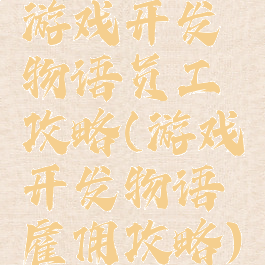 游戏开发
物语员工
攻略(游戏
开发物语
雇佣攻略)